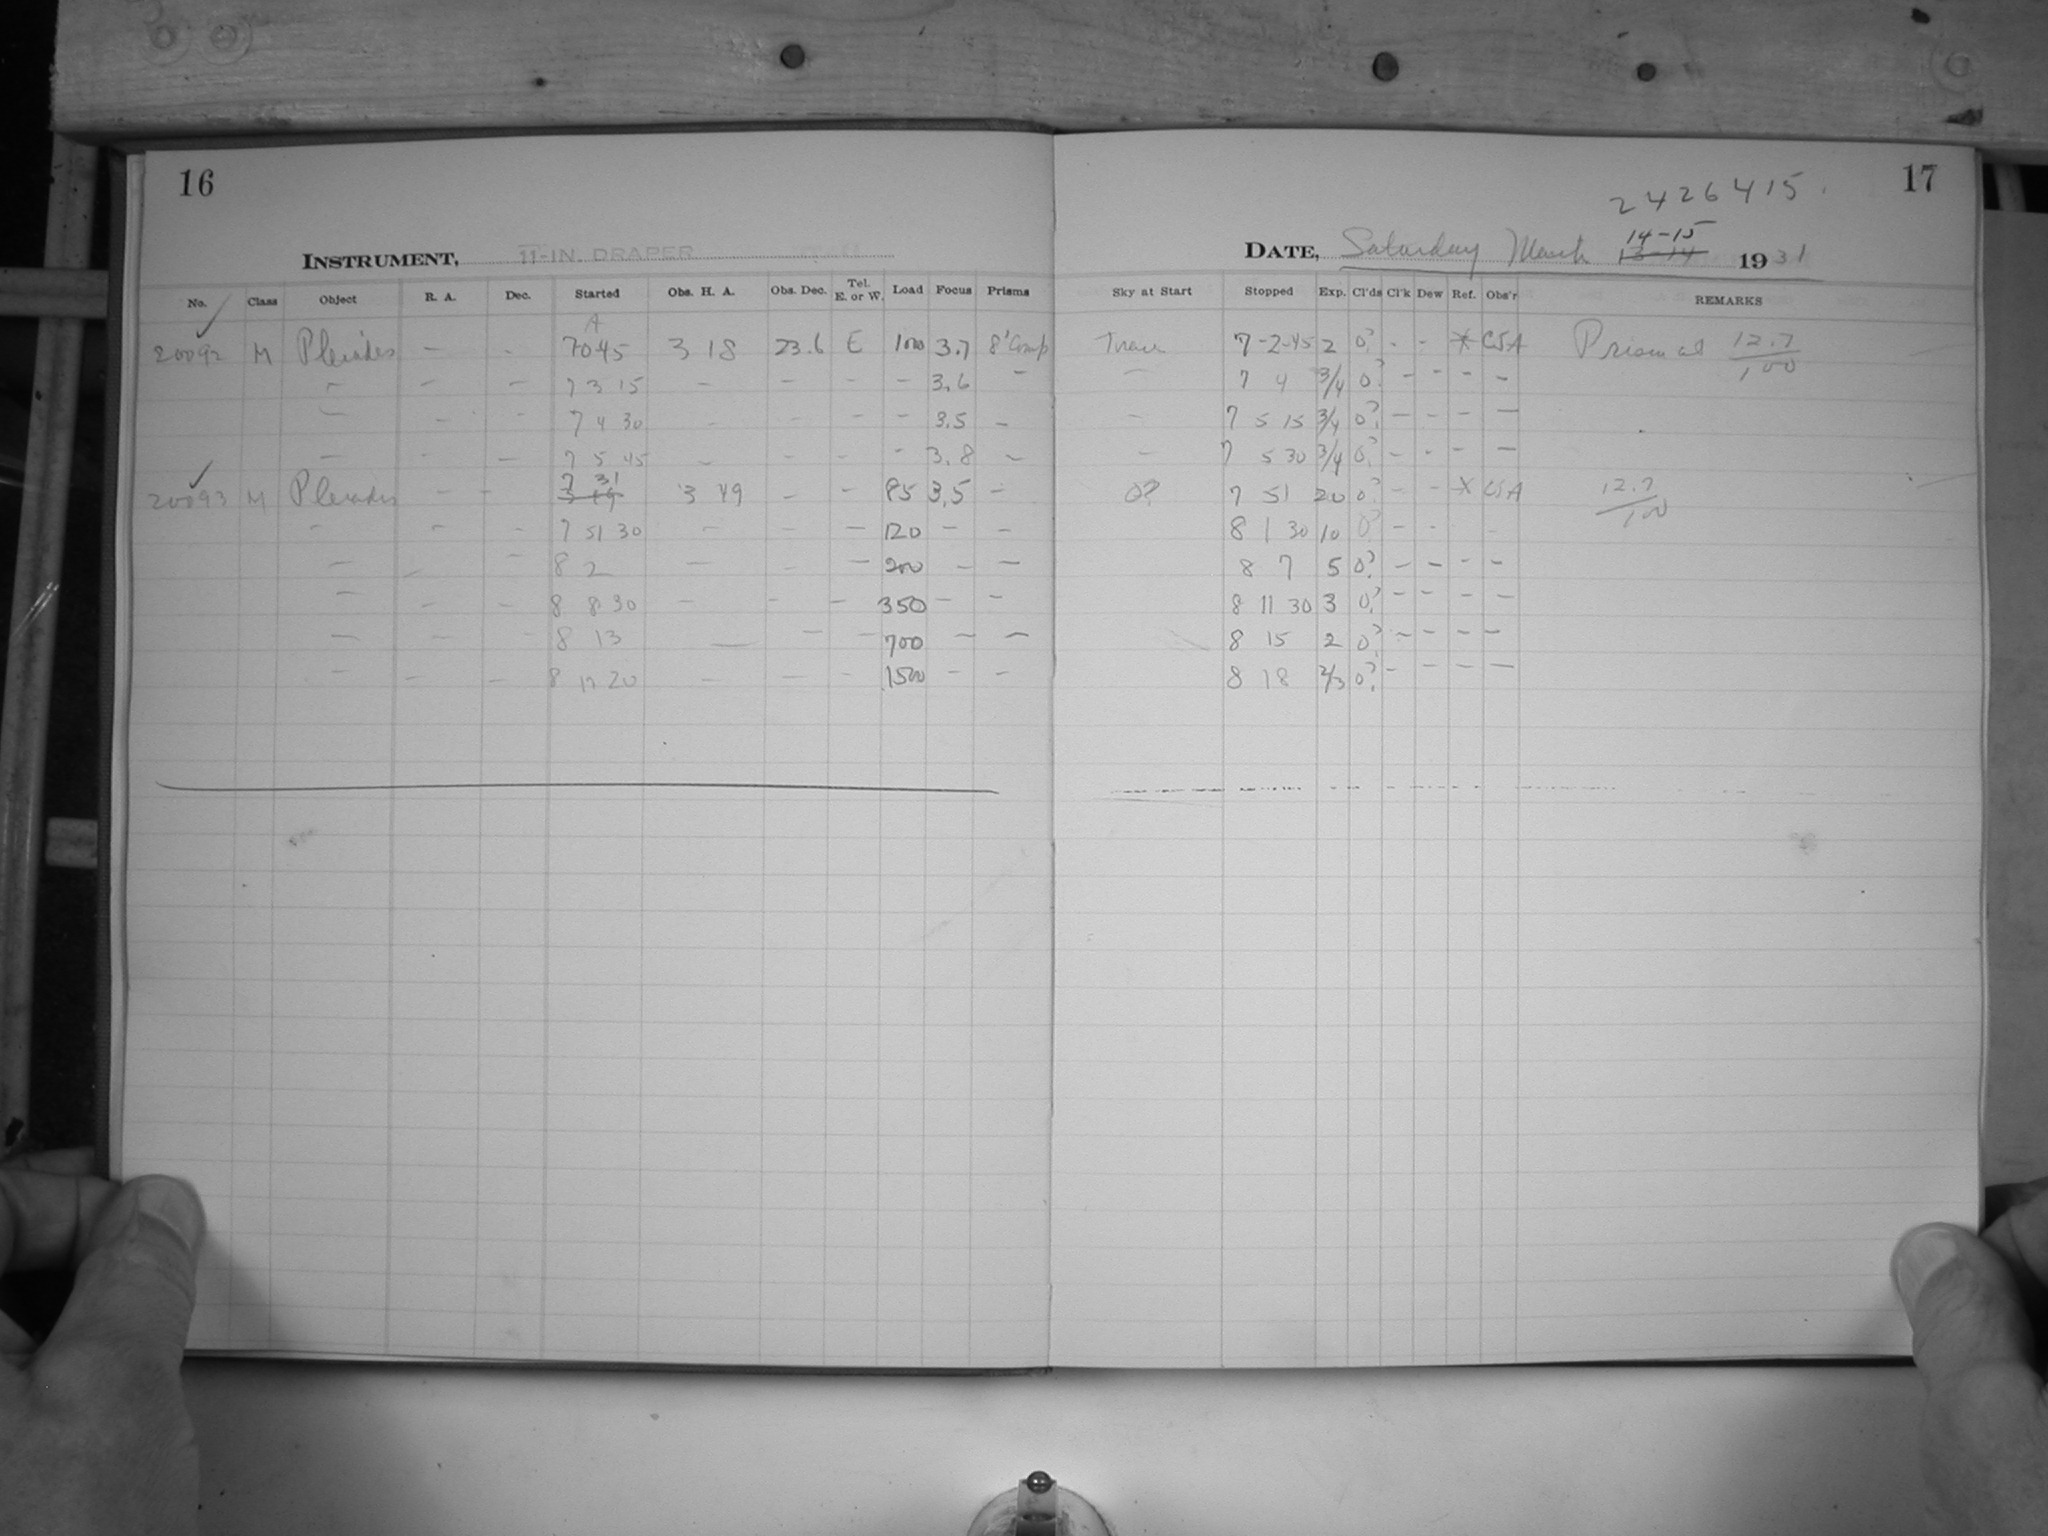 16
INSTRUMENT, 11-IN. DRAPER
No. Class Object R. A. Dec. Started Obs. H. A. Obs. Dec. Tel. E. or W. Load Focus Prisms
A
20092 M Pleiades - - 7 0 45 3 18 23.6 E 100 3.7 8' Comp
- - - 7 3 15 - - - - 3.6 -
- - - 7 4 30 - - - - 3.5 -
- - - 7 5 45 - - - - 3.8 -
7 31
20093 M Pleiades - - 3 49 - - 85 3.5 -
- - - 7 51 30 - - - 120 - -
- - - 8 2 - - - 200 - -
- - - 8 8 30 - - - 350 - -
- - - 8 13 - - - 700 - -
- - - 8 17 20 - - - 1500 - -
17
2426415.
14-15
DATE, Saturday March 13-14 1931
Sky at Start Stopped Exp. Cl'ds Cl'k Dew Ref. Obs'r REMARKS
7-2-45 2 0? - - X CJA Prism at 12.7/100
- 7 4 3/4 0? - - - -
- 7 5 15 3/4 0? - - - -
- 7 5 30 3/4 0? - - - -
0? 7 51 20 0? - - X CJA 12.7/100
8 1 30 10 0? - -
8 7 5 0? - - - -
8 11 30 3 0? - - - -
8 15 2 0? - - - -
8 18 2/3 0? - - - -